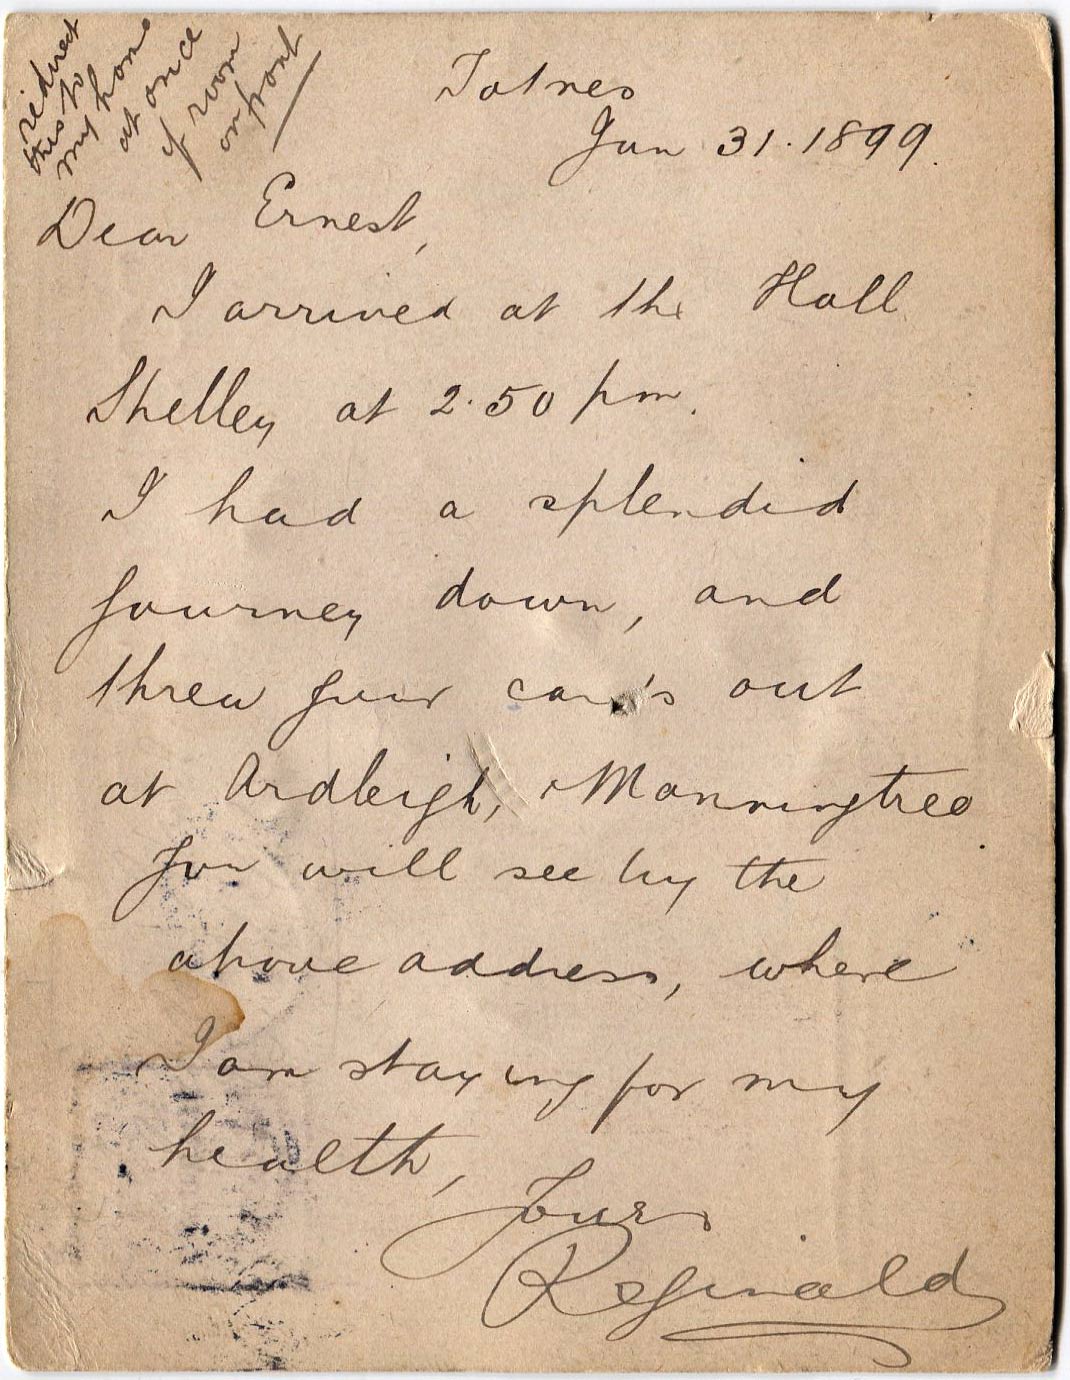 redirect
this to
my home
at once
if room
on front
Totnes
Jan 31. 1899.
Dear Ernest,
I arrived at the Hall
Shelley at 2.50 pm.
I had a splendid
journey down, and
threw four
out
at Ardleigh, Manningtree
You will see by the
above address, where
I am staying for my
health,
Yours
Reginald